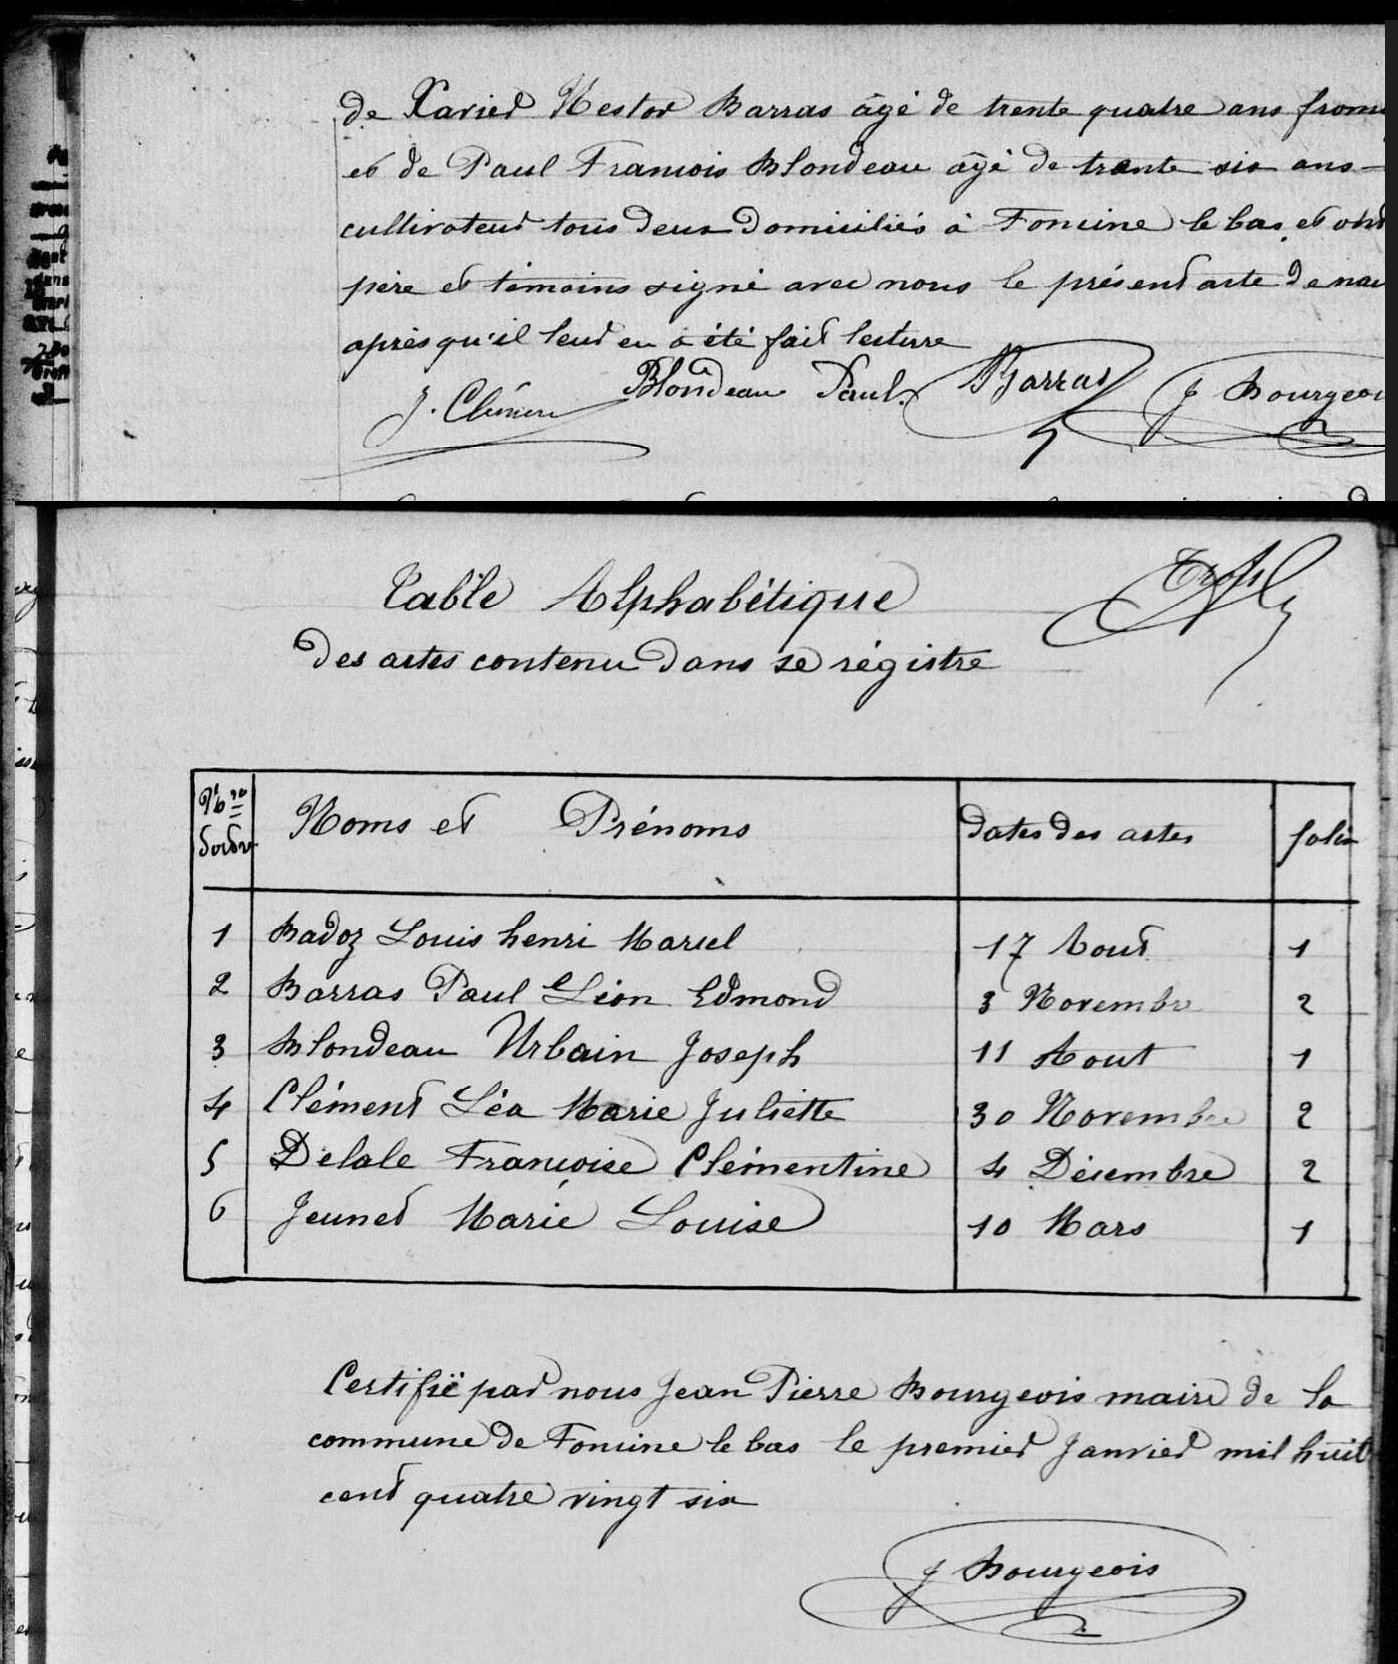 de Xavier Nestor Barras âgé de trente quatre ans from
et de Paul Francois Blondeau âgé de trente six ans
cultivateur tous deux domiciliés à Foncine le bas et ont
père et témoins signé avec nous le présent acte de nai
après qu'il leur en a été fait lecture
J. Clément Blondeau Paul. Barras J Bourgeoi
Table Alphabétique
des actes contenu dans ce régistre
Nos d'ordre Noms et Prénoms dates des actes folio
1 Badoz Louis henri Marcel 17 Aout 1
2 Barras Paul Léon Edmond 3 Novembre 2
3 Blondeau Urbain Joseph 11 Aout 1
4 Clément Léa Marie Juliette 30 Novembre 2
5 Delale Francoise Clémentine 4 Décembre 2
6 Jeunet Marie Louise 10 Mars 1
Certifié par nous Jean Pierre Bourgeois maire de la
commune de Foncine le bas le premier Janvier mil huit
cent quatre vingt six
J Bourgeois